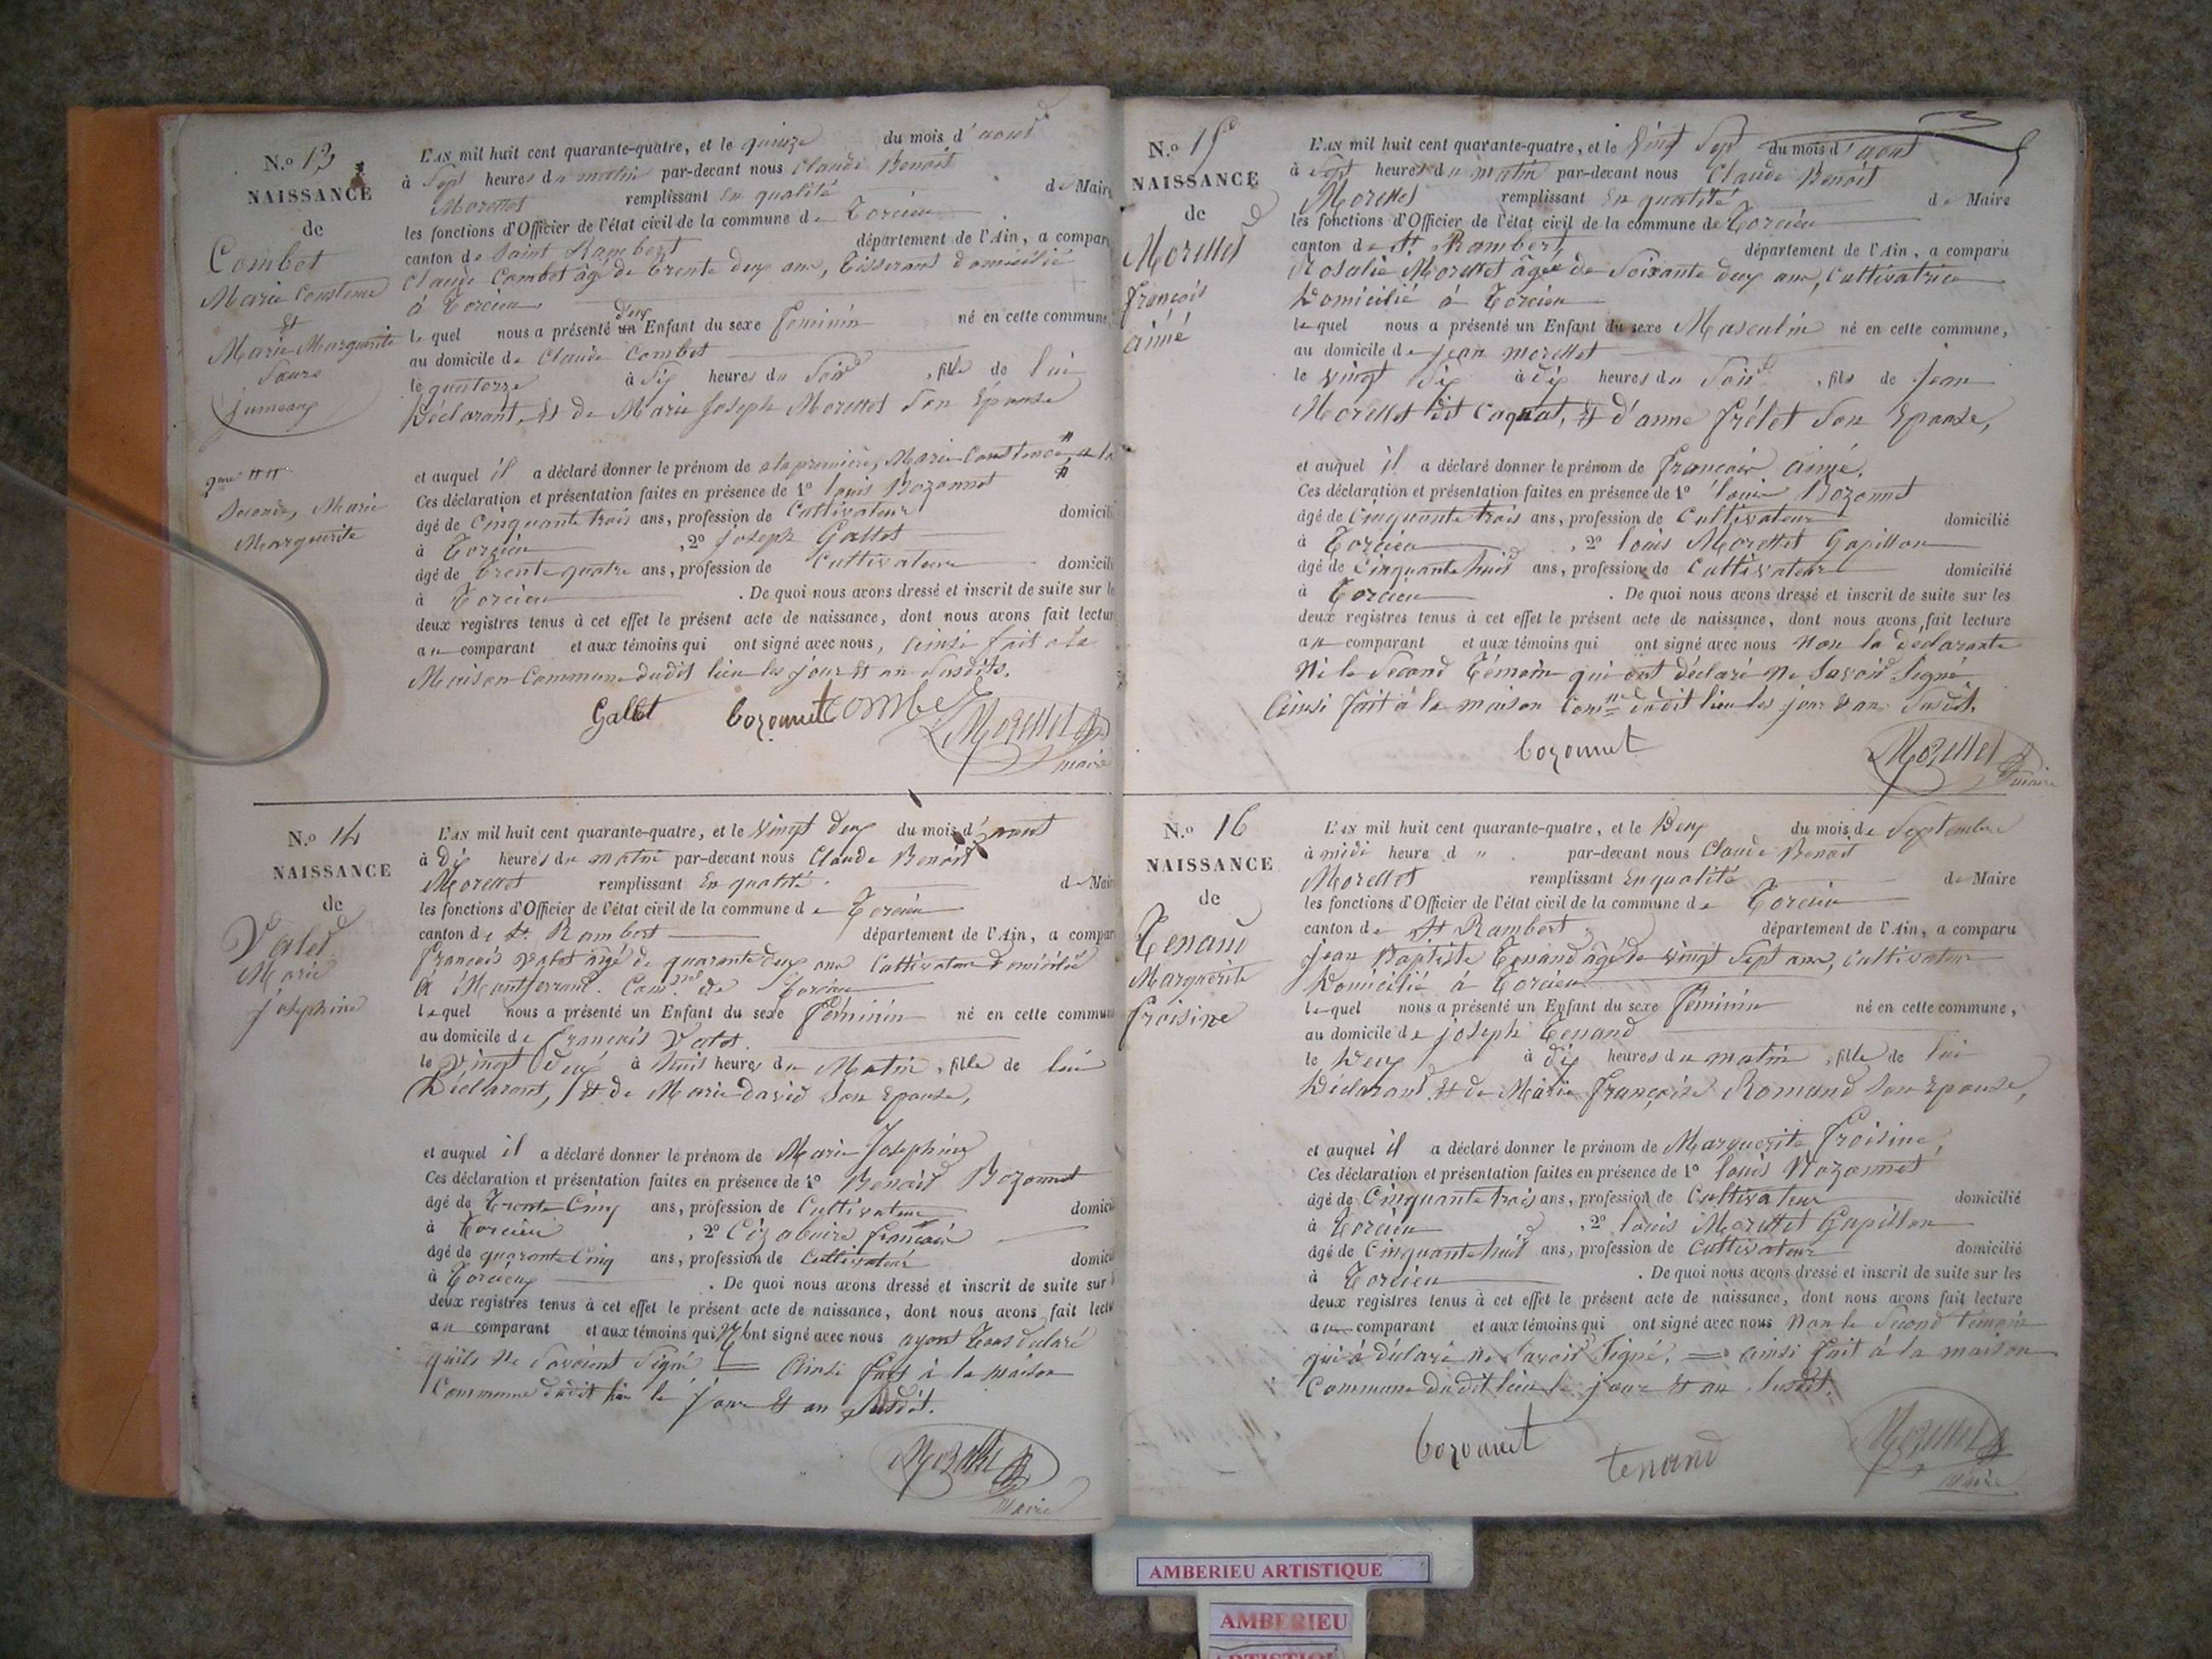 N.o 13
NAISSANCE
de
Combet
Marie Constence
Et
Marie Marguerite
Sœurs
jumeaux
2me
Seconde, Marie
Marguerite
L'AN mil huit cent quarante-quatre, et le quinze du mois d'aout
à Sept heures du matin par-devant nous Claude Benoit
Morettet remplissant En qualité de Maire
les fonctions d'Officier de l'état civil de la commune de Torcieu
canton de Saint Rambert département de l'Ain, a compar
Claude Combet âgé de trente deux ans, Tisserant domicilié
à Torcieu
le quel nous a présenté deux Enfant du sexe feminin né en cette commune,
au domicile de Claude Combet
le quatorze à Six heures du Soir, fille de lui
Déclarant, Et de Marie Joseph Morettet Son Epouse
et auquel il a déclaré donner le prénom de a la premiere, Marie Constence, a la
Ces déclaration et présentation faites en présence de 1o louis Bozonnet
âgé de Cinquante trois ans, profession de Cultivateur domicili
à Torcieu, 2o joseph Gallet
âgé de trente quatre ans, profession de Cultivateur domicili
à Torcieu. De quoi nous avons dressé et inscrit de suite sur le
deux registres tenus à cet effet le présent acte de naissance, dont nous avons fait lectur
au comparant et aux témoins qui ont signé avec nous, Ainsi fait a la
Maison Commune dudit lieu les jour Et an Susdits.
Gallet bozonnet Combet Morettet
maire
N.o 14
NAISSANCE
de
Valet
Marie
josephine
L'AN mil huit cent quarante-quatre, et le Vingt deux du mois d'aout
à dix heures du matin par-devant nous Claude Benoit
Morettet remplissant En qualité de Maire
les fonctions d'Officier de l'état civil de la commune de Torcieu
canton de St. Rambert département de l'Ain, a compar
François Valet âgé de quarante deux ans Cultivateur domicilié
à Montferrand. Com.ne de Torcieu
lequel nous a présenté un Enfant du sexe Féminin né en cette commun
au domicile de François Valet.
le Vingt deux à huit heures du Matin, fille de lui
Déclarant, Et de Marie david Son Epouse,
et auquel il a déclaré donner le prénom de Marie Josephine
Ces déclaration et présentation faites en présence de 1o Benoit Bozonnet
âgé de Trente Cinq ans, profession de Cultivateur domici
à Torcieu, 2o françois
âgé de quarante Cinq ans, profession de Cultivateur domici
à Torcieu. De quoi nous avons dressé et inscrit de suite sur
deux registres tenus à cet effet le présent acte de naissance, dont nous avons fait lectu
au comparant et aux témoins qui N'ont signé avec nous ayant Tous déclaré
quils Ne Savoient Signé Ainsi fait à la maison
Commune dudit lieu le jour Et an Susdit.
Morettet
maire
N.o 15
NAISSANCE
de
Morettet
françois
aimé
L'AN mil huit cent quarante-quatre, et le Vingt Sept du mois d'aout
à Sept heures du matin par-devant nous Claude Benoit
Morettet remplissant En qualité de Maire
les fonctions d'Officier de l'état civil de la commune de Torcieu
canton de St Rambert département de l'Ain, a comparu
Rosalie Morettet âgée de Soixante deux ans, Cultivatrice
Domicilié à Torcieu
lequel nous a présenté un Enfant du sexe Masculin né en cette commune,
au domicile de jean morettet
le vingt Six à dix heures du Soir, fils de jean
Morettet dit Coquat, Et d'anne frélet Son Epouse,
et auquel il a déclaré donner le prénom de françois aimé.
Ces déclaration et présentation faites en présence de 1o louis Bozonnet
âgé de Cinquante trois ans, profession de Cultivateur domicilié
à Torcieu, 2o louis Morettet Gapillon
âgé de Cinquante huit ans, profession de Cultivateur domicilié
à Torcieu. De quoi nous avons dressé et inscrit de suite sur les
deux registres tenus à cet effet le présent acte de naissance, dont nous avons fait lecture
au comparant et aux témoins qui ont signé avec nous Non la déclarante
Ni le Second Témoin qui ont déclaré Ne Savoir Signé
Ainsi fait à la maison Com.ne dudit lieu les jour Et an Susdit.
bozonnet Morettet
maire
N.o 16
NAISSANCE
de
Tenand
Marguerite
froisine
L'AN mil huit cent quarante-quatre, et le Deux du mois de Septembre
à midi heure d " par-devant nous Claude Benoit
Morettet remplissant En qualité de Maire
les fonctions d'Officier de l'état civil de la commune de Torcieu
canton de St Rambert département de l'Ain, a comparu
jean Baptiste Tenand âgé de vingt Sept ans, Cultivateur
Domicilié à Torcieu
lequel nous a présenté un Enfant du sexe Féminin né en cette commune,
au domicile de joseph Tenand
le Deux à dix heures du matin, fille de lui
Déclarant Et de Marie françoise Romand Son Epouse,
et auquel il a déclaré donner le prénom de Marguerite froisine,
Ces déclaration et présentation faites en présence de 1o louis Bozonnet
âgé de Cinquante trois ans, profession de Cultivateur domicilié
à Torcieu, 2o louis Morettet Gapillon
âgé de Cinquante huit ans, profession de Cultivateur domicilié
à Torcieu. De quoi nous avons dressé et inscrit de suite sur les
deux registres tenus à cet effet le présent acte de naissance, dont nous avons fait lecture
au comparant et aux témoins qui ont signé avec nous Non le Second témoin
qui à déclaré ne Savoir Signé. ainsi fait à la maison
Commune dudit lieu le jour Et an Susdit.
bozonnet tenand Morettet
maire
AMBERIEU ARTISTIQUE
AMBERIEU
ARTISTIQUE